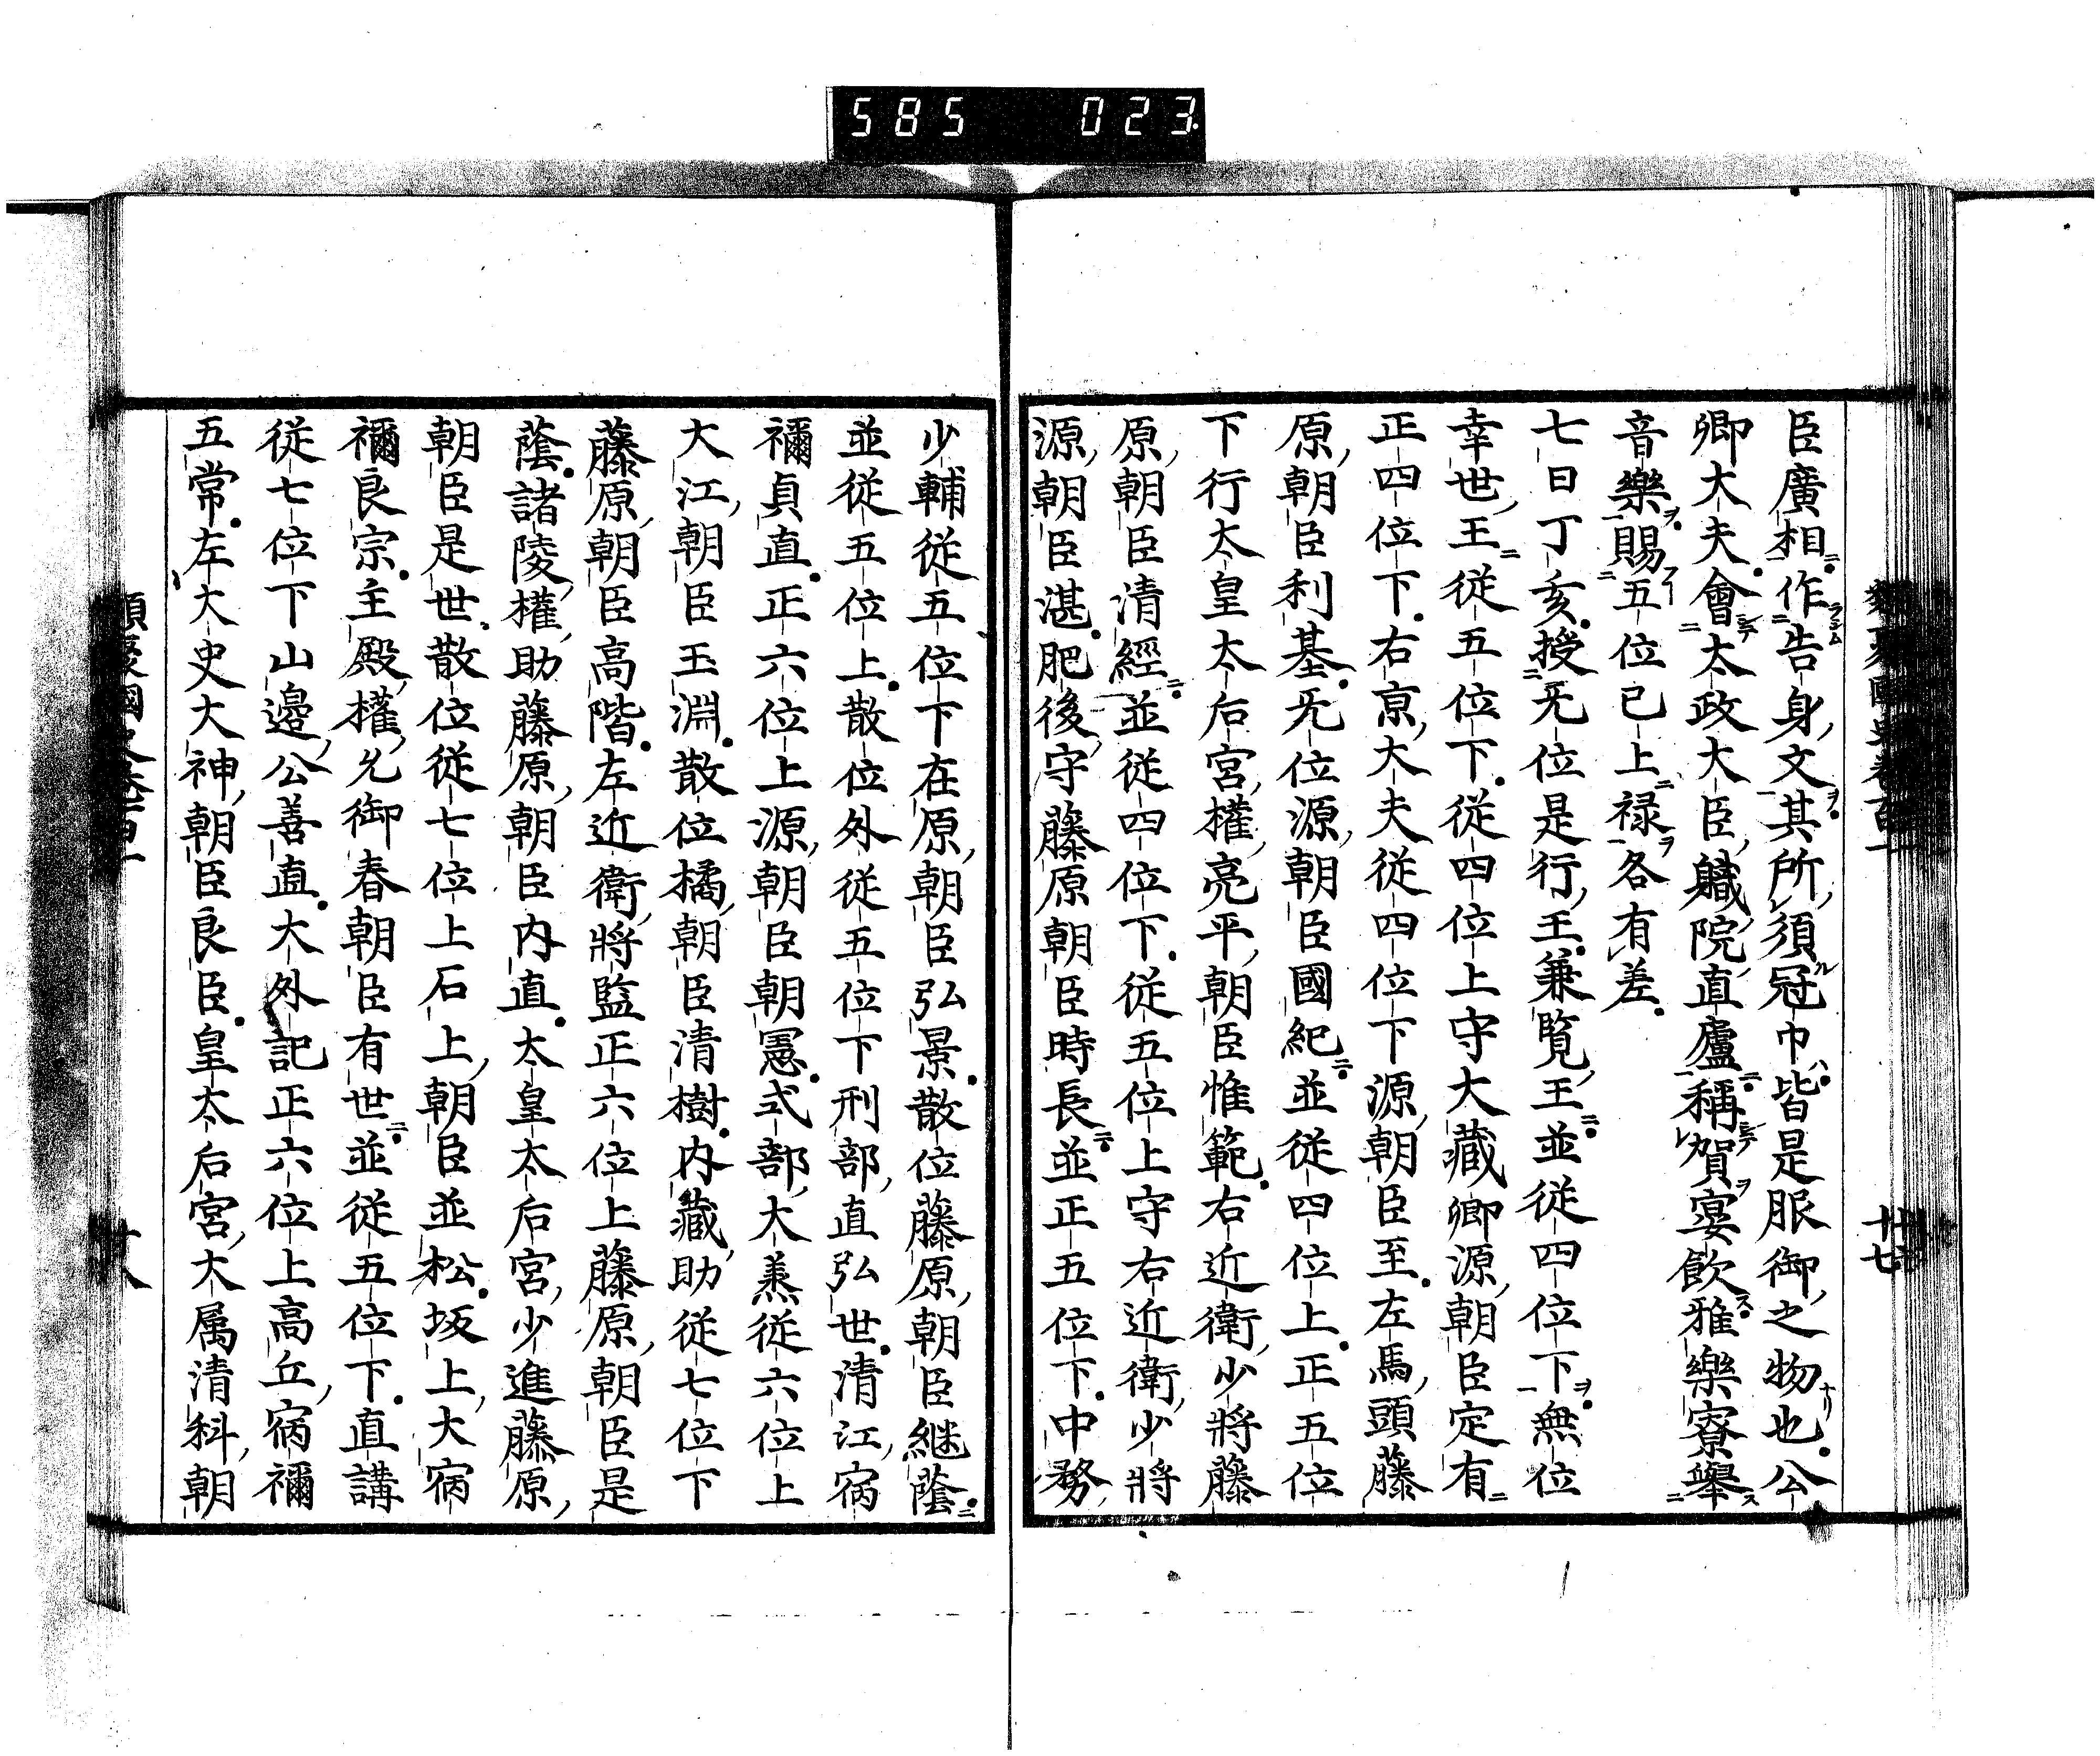 585 023
臣廣相作告身文其所須冠巾皆是服御之物也公
卿大夫會太政大臣職院直廬稱賀宴飲雅樂寮擧
音樂賜五位已上祿各有差
七日丁亥授旡位是行王兼覧王並從四位下無位
幸世王從五位下從四位上守大藏卿源朝臣定有
正四位下右京大夫從四位下源朝臣至左馬頭藤
原朝臣利基旡位源朝臣國紀並從四位上正五位
下行太皇太后宮權亮平朝臣惟範右近衛少將藤
原朝臣清經並從四位下從五位上守右近衛少將
源朝臣湛肥後守藤原朝臣時長並正五位下中務
少輔從五位下在原朝臣弘景散位藤原朝臣継蔭
並從五位上散位外從五位下刑部直弘世清江宿
禰貞直正六位上源朝臣朝憲式部大丞從六位上
大江朝臣玉淵散位橘朝臣清樹内藏助從七位下
藤原朝臣高階左近衛將監正六位上藤原朝臣是
蔭諸陵權助藤原朝臣内直太皇太后宮少進藤原
朝臣是世散位從七位上石上朝臣並松坂上大宿
禰良宗主殿權允御春朝臣有世並從五位下直講
從七位下山邊公善直大外記正六位上高丘宿禰
五常左大史大神朝臣良臣皇太后宮大属清科朝